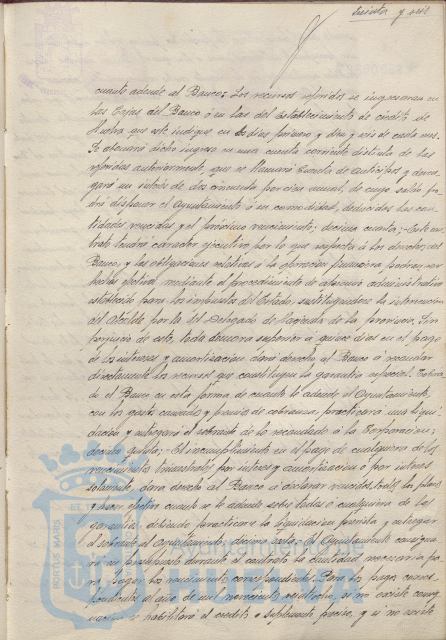 treinta y seis
cuanto adeude al Banco; Los recursos referidos se ingresaran en
las Cajas del Banco ó en las del Establecimiento de crédito de
Huelva que este indique en los dias primero y diez y seis de cada mes.
Se abonará dicho ingreso en una cuenta corriente distinta de las
referidas anteriormente, que se llamará Cuenta de Anticipos y deven-
gará un interés de dos cincuenta por cien anual, de cuyo saldo po-
drá disponer el Ayuntamiento á su comodidad, deducidas las can-
tidades vencidas y el próximo vencimiento; décima cuarta:- Este con-
trato tendrá caracter ejecutivo por lo que respecta á los derechos del
Banco, y las obligaciones relativas á la operacion financiera podrán ser
hechas efectivas mediante el procedimiento de apremio administrativo
establecido para los impuestos del Estado, sustituyendose la intervencion
del Alcalde por la del Delegado de Hacienda de la provincia. Sin
perjuicio de esto, toda demora superior á quince dias en el pago
de los intereses y amortizacion dará derecho al Banco á recaudar
directamente los recursos que constituyen la garantia especial.
de el Banco en esta forma de cuanto le adeude el Ayuntamiento,
con los gastos causados y premio de cobranza, practicará una liqui-
dacion y entregará el sobrante de lo recaudado á la Corporacion;
décima quinta: El incumplimiento en el pago de cualquiera de los
vencimientos trimestrales por interes y amortizacion ó por interes
solamente, dará derecho al Banco á declarar vencidos todos los plazos
y hacer efectivo cuanto se le adeude sobre todas ó cualquiera de las
garantias, debiendo practicarse la liquidacion prevista y entregar
el sobrante al Ayuntamiento; décima sexta: El Ayuntamiento consigna-
rá en presupuesto durante el contrato la cantidad necesaria pa-
ra pagar los vencimientos correspondientes. Para los pagos corres-
pondientes al año de mil novecientos veintiocho, si no existe consig-
nacion se habilitará el credito ó suplemento preciso, y si no existe
PORTUS MARIS
Ayuntamiento de